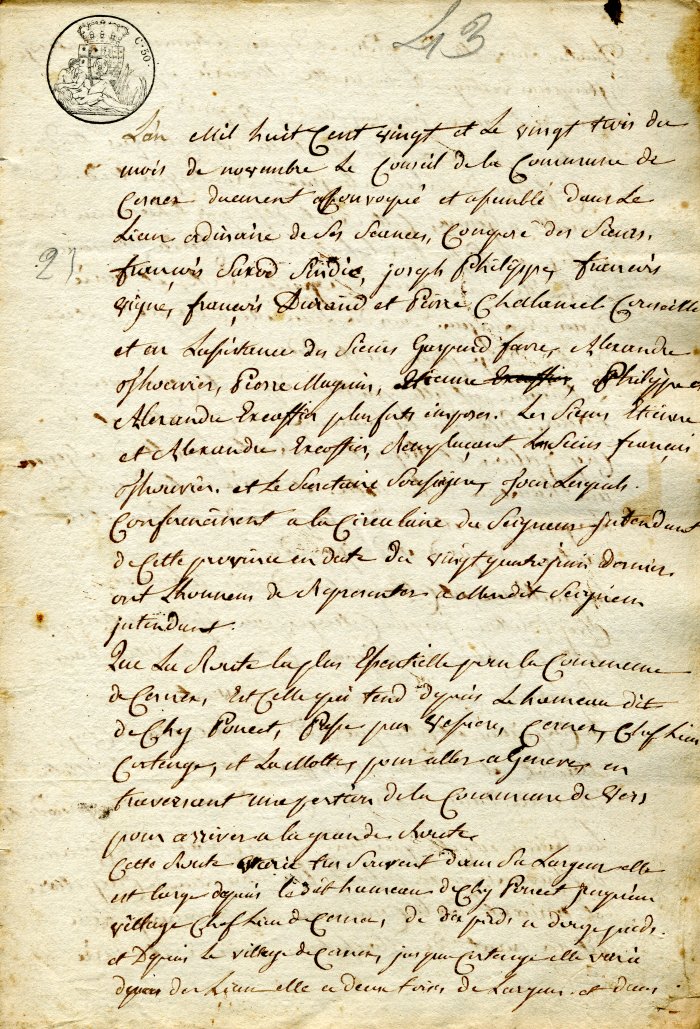 43
C. 50.
L'an Mil huit Cent vingt et Le vingt trois du
mois de novembre Le Conseil de la Commune de
Cernex duement Convoqué et assemblé dans Le
Lieu ordinaire de Ses Seances, Composé des Sieurs,
23.
françois Sindic, joseph Philippe, françois
vigne, françois Durand et Pierre Chalamel Conseille
et en Lassistance des Sieurs Gaspard favre, Alexandre
Pierre Magnin, Etienne Excoffier, Philippe
Alexandre Excoffier plus forts imposes. Les Sieurs Etienne
et Alexandre Excoffier, Remplaçant Les Sieurs françois
et Le Secretaire Soussigné, Lesquels.
Conformément a la Circulaire du Seigneur intendant
de Cette province en date du vingt quatre juin dernier
ont Lhonneur de Representer a Mondit Seigneur
jntendant.
Que La Route la plus Essentielle pour la Commune
de Cernex, Est Celle qui tend depuis Le hameau dit
de Chy Poncet, Passe par Verpier, Cernex, Chef Lieu
Cortenge, et La Motte, pour aller a Geneve, en
traversant une portion de la Commune de Vers
pour arriver a la grande Route.
Cette Route varie tres Souvent dans Sa Largeur elle
est large depuis le dit hameau de Chy Poncet jusqu'au
village Chef Lieu de Cernex, de dix pieds a douze pieds.
et Depuis Le village de Cernex, jusqua Cortenge elle varie
Lieu elle a deux toises de Largeur. et dans